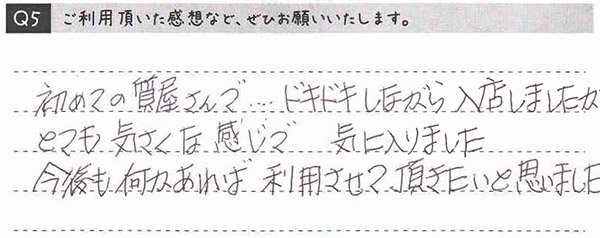 Q5 ご利用頂いた感想など、ぜひお願いいたします。
初めての質屋さんで…ドキドキしながら入店しましたが
とても気さくな感じで 気に入りました
今後も何かあれば利用させて頂きたいと思いました